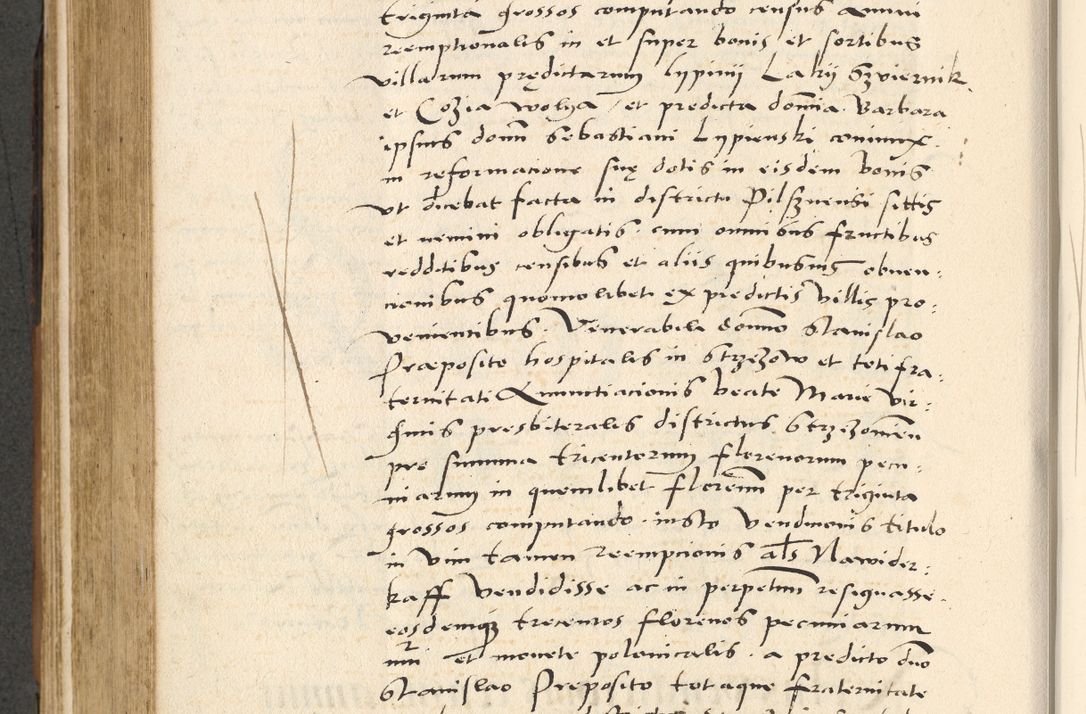 triginta grossos computando census annui
reemptionalis in et super bonis et sortibus
villarum prędictarum Lypiny Laky Szviernik
et Cozia wolya / et predicta domina Barbara
ipsius domini Sebastiani Lypienski coniunx
in reformacione suę dotis in eisdem bonis
ut dicebat facta in districtu Pilsznensi sittis
et nemini obligatis. cum omnibus fructibus
redditibus censibus et aliis quibusuis obuen:
cionibus quomolibet ex predictis villis pro:
venientibus. Venerabili domino Stanislao
Præposito hospitalis in Strzezow et toti fra:
ternitati Annuntiacionis beate Marie Vir:
ginis presbiteralis districtus Strzezowien
pro summa tricentorum florenorum pecu:
niarum in quemlibet florenum per triginta
grossos computando. iusto vendicionis titulo
in vim tamen reempcionis als Nawider:
kaff vendidisse ac in perpetuum resignasse.
eosdemque trecentos florenos pecuniarum
nri et monete polonicalis. a predicto dno
Stanislao Preposito totaque fraternitate